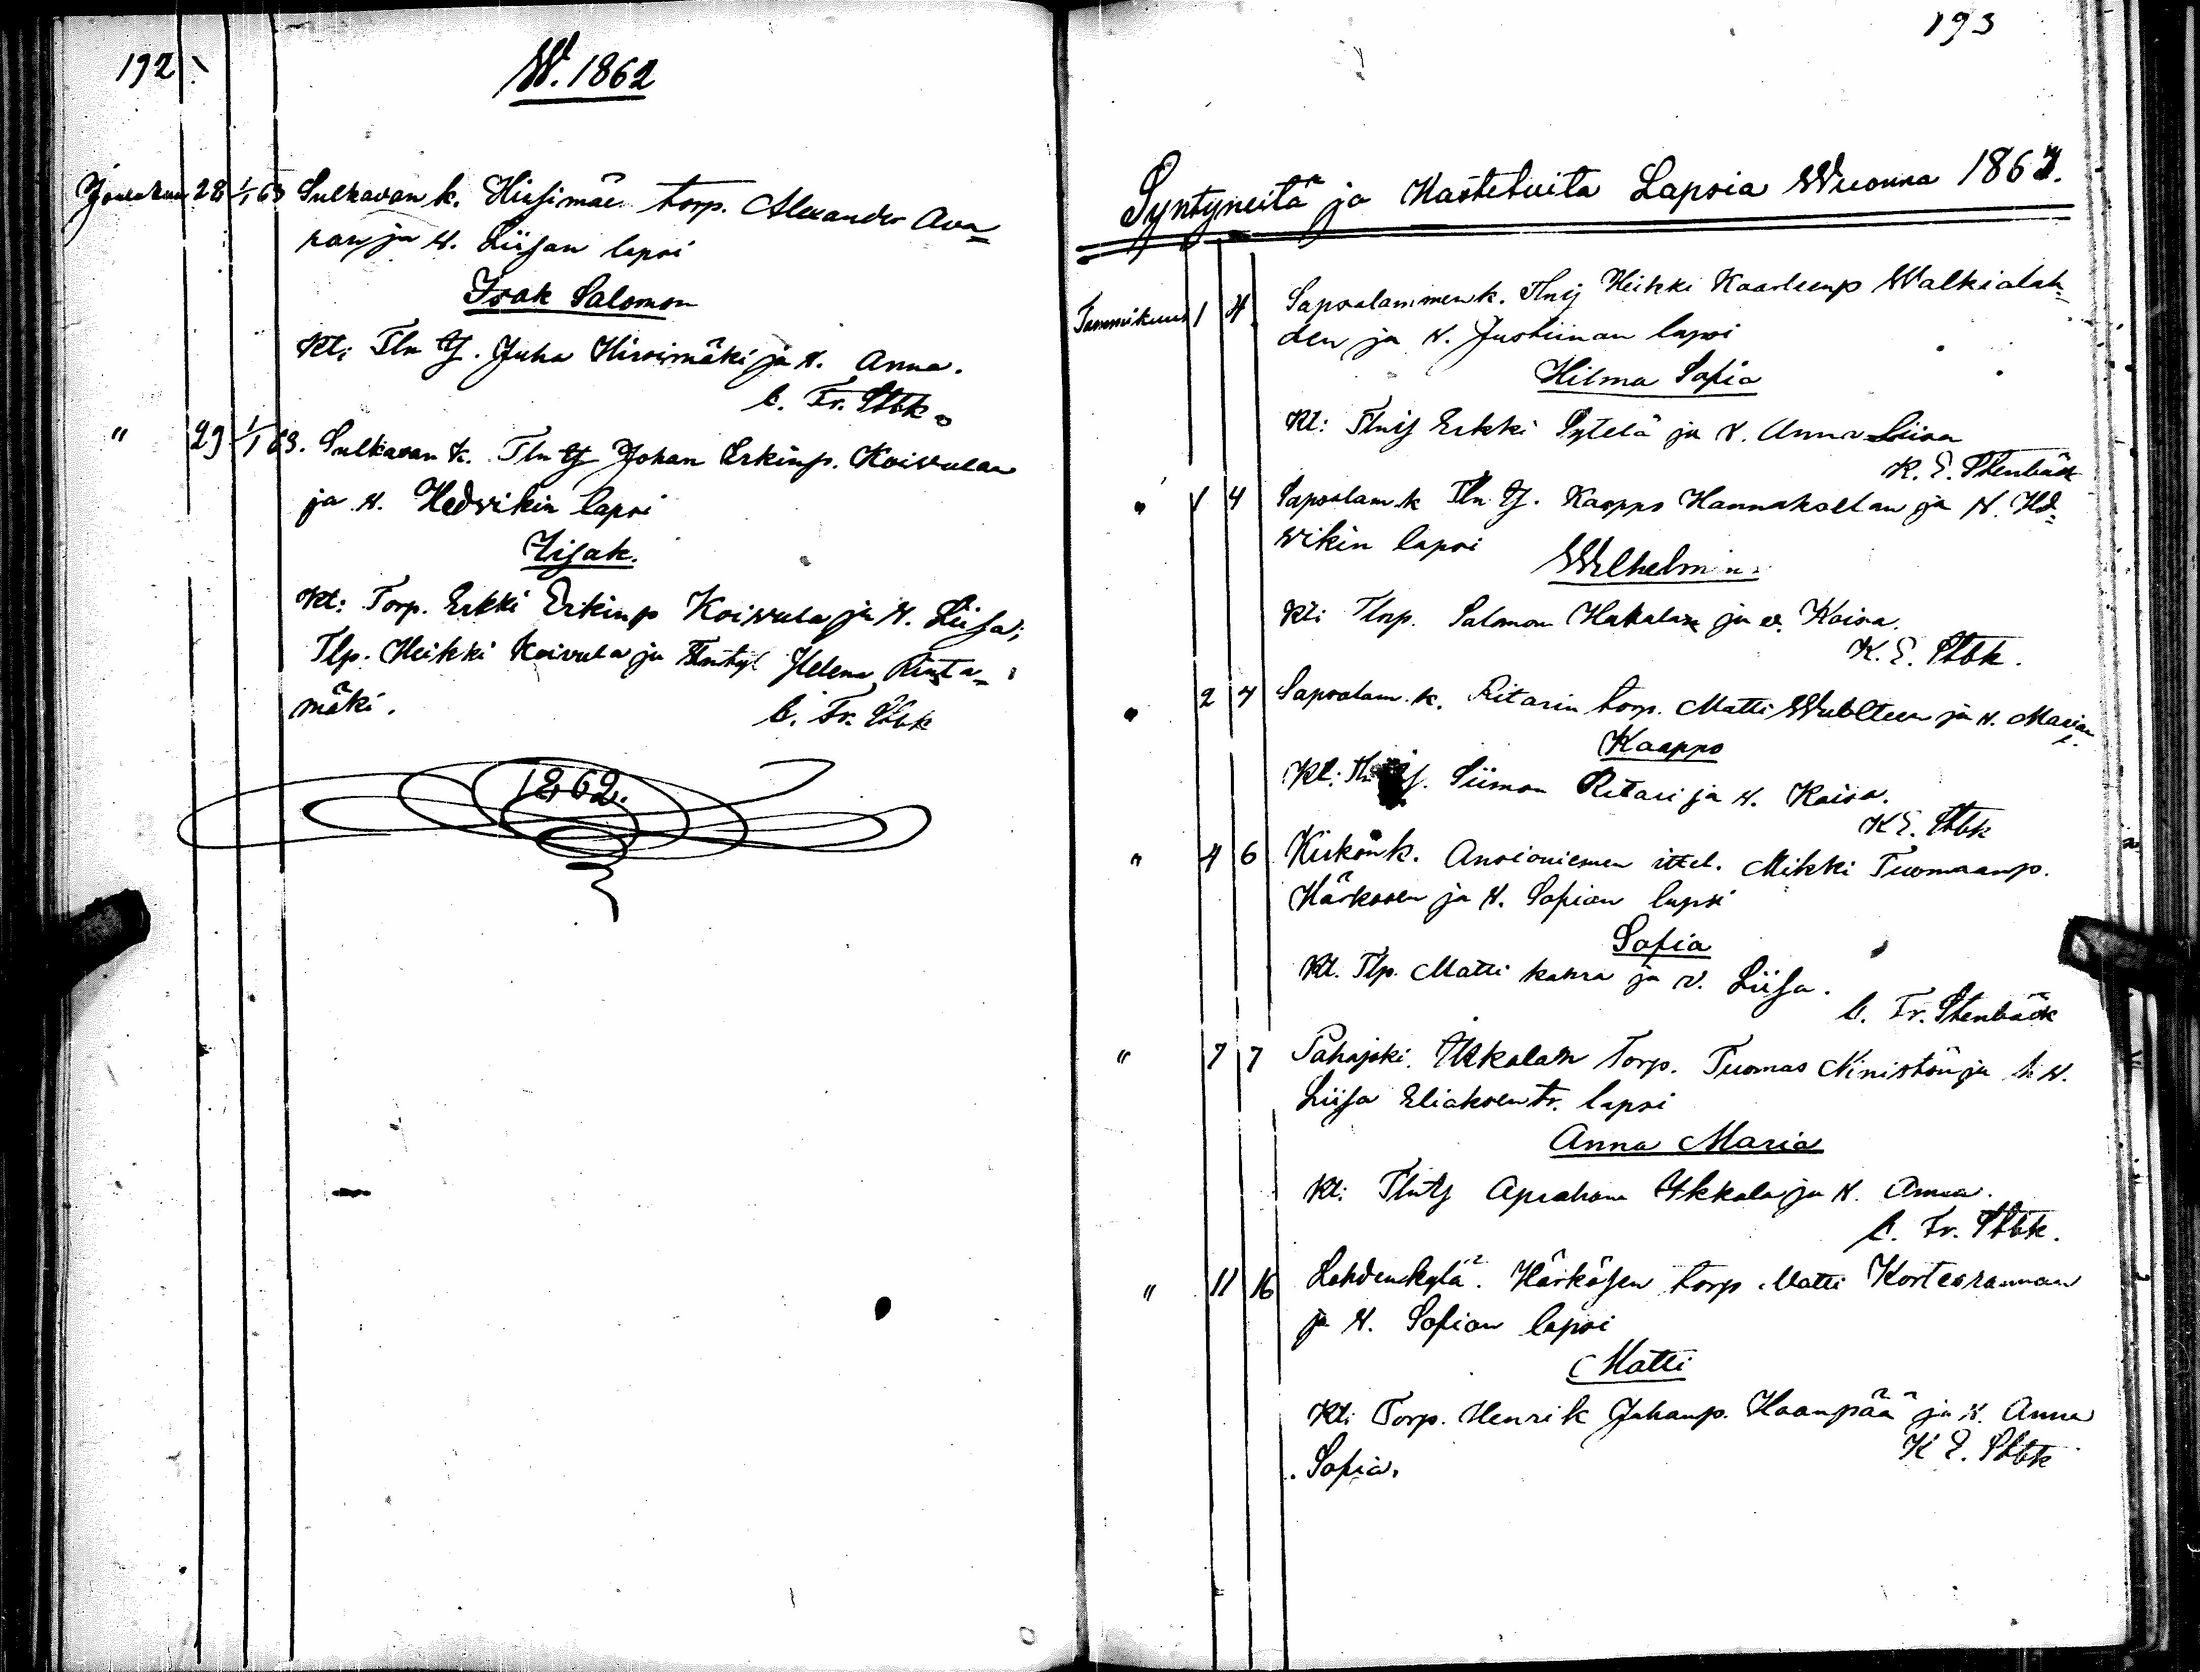 192
W. 1862
Joulukuu 28 1/1 63 Sulkavan k. Hirsimäe torp. Alexander Ava=
ran ja v. Liisan lapsi
Isak Salomon
Kt: Tln Ij. Juha Hirsimäki ja v. Anna.
C. Fr. Stbk
" 29 1/1 63. Sulkavan k. Tln Ij Johan Erkinp. Koivulan
ja v. Hedvikin lapsi
Iisak.
Kt: Torp. Erkki Erkinp Koivula ja v. Liisa;
Tlp. Heikki Koivula ja Tlntyt Helena Rinta=
mäki.
C. Fr. Stbk
1862.
193
Syntyneitä ja Kastetuita Lapsia Wuonna 1863.
Tammikuu 1 4 Sapsalammen k. Tlnij Heikki Kaarleenp Walkialah=
den ja v. Justiinan lapsi
Hilma Sofia
Kt: Tlnij Erkki Sytelä ja v. Anna Liisa
K. E. Stenbäck
" 1 4 Sapsalam. k Tln Ij. Kaappo Hannukallan ja v. Hd=
vikin lapsi
Wilhelmina
Kt: Tlnp. Salomon Hakalan ja v. Kaisa.
K. E. Stbk.
" 2 4 Sapsalam. k. Ritarin torp. Matti Wultteen ja v. Marian
l.
Kaappo
Kt: Siimon Ritari ja v. Kaisa.
K E. Stbk
" 4 6 Kirkon k. Ansioniemen ittel. Mikki Tuomaanp.
Härkösen ja v. Sofian lapsi
Sofia
Kt. Tlp. Matti Kahra ja v. Liisa.
C. Fr. Stenbäck
" 7 7 Pahajoki. Ukkolan Torp. Tuomas Niinistön ja h. v.
Liisa Eliaksentr. lapsi
Anna Maria
Kt: TlnIj Apraham Ykkala ja v. Anna.
C. Fr. Stbk.
" 11 16 Lahdenkylä. Härkösen torp Matti Kortesrannan
ja v. Sofian lapsi
Matti
Kt: Torp. Henrik Juhanp. Haanpää ja v. Anna
Sofia.
K E. Stbk